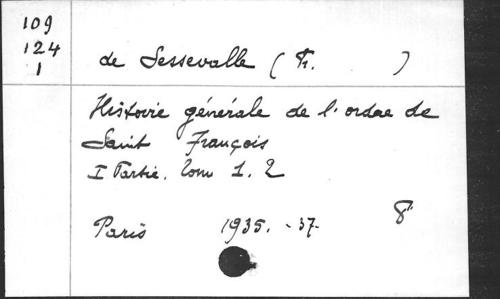 109
124
1
de Sessevalle (Fr. )
Histoire générale de l'ordre de
Saint François
I Partie. Tom 1. 2
Paris 1935. -37. 8°